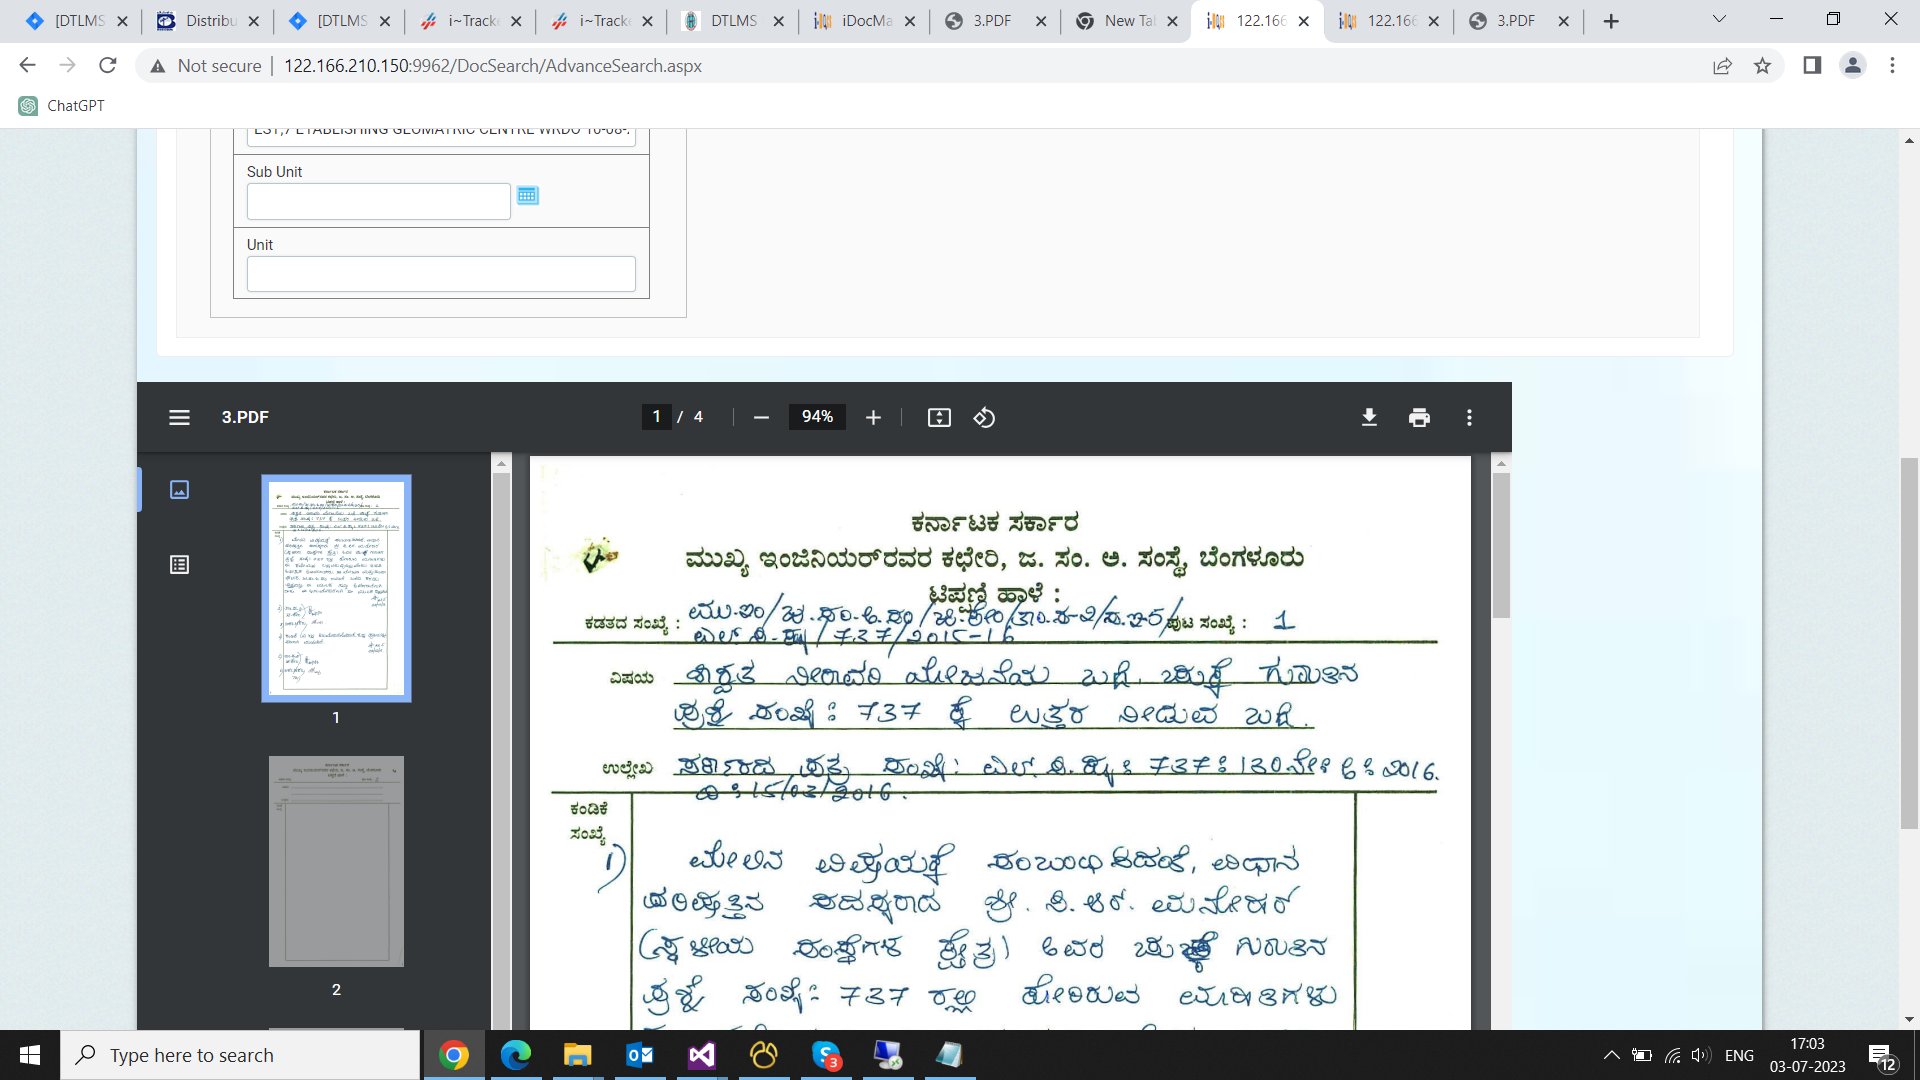 [DTLMS
Distribu
[DTLMS
i~Tracke
i~Tracke
DTLMS
iDocMa
3.PDF
New Tal
122.166
122.166
3.PDF
Not secure
122.166.210.150:9962/DocSearch/AdvanceSearch.aspx
ChatGPT
EST,7 ETABLISHING GEOMATRIC CENTRE WRDO 10-08-.
Sub Unit
Unit
3.PDF
1 / 4
94%
1
2
ಕರ್ನಾಟಕ ಸರ್ಕಾರ
ಮುಖ್ಯ ಇಂಜಿನಿಯರ್‌ರವರ ಕಛೇರಿ, ಜ. ಸಂ. ಅ. ಸಂಸ್ಥೆ, ಬೆಂಗಳೂರು
ಟಿಪ್ಪಣಿ ಹಾಳೆ :
ಕಡತದ ಸಂಖ್ಯೆ : ಪುಟ ಸಂಖ್ಯೆ : 1
737/2015-16
ವಿಷಯ ನೀರಾವರಿ ಯೋಜನೆಯ ಬಗ್ಗೆ ಚುಕ್ಕೆ ಗುರುತಿನ
ಪ್ರಶ್ನೆ ಸಂಖ್ಯೆ: 737 ಕ್ಕೆ ಉತ್ತರ ನೀಡುವ ಬಗ್ಗೆ.
ಉಲ್ಲೇಖ ಸರ್ಕಾರದ ಪತ್ರ ಸಂಖ್ಯೆ: ಎಲ್.ಸಿ.ಕ್ಯೂ: 737: 2016.
ದಿ: 15/03/2016.
ಕಂಡಿಕೆ
ಸಂಖ್ಯೆ
1) ಮೇಲಿನ ವಿಷಯಕ್ಕೆ ಸಂಬಂಧಿಸಿದಂತೆ, ವಿಧಾನ
ಪರಿಷತ್ತಿನ ಸದಸ್ಯರಾದ ಶ್ರೀ.
(ಸ್ಥಳೀಯ ಸಂಸ್ಥೆಗಳ ಕ್ಷೇತ್ರ) ಅವರ ಚುಕ್ಕೆ ಗುರುತಿನ
ಪ್ರಶ್ನೆ ಸಂಖ್ಯೆ: 737 ರಲ್ಲಿ ಕೋರಿರುವ ಮಾಹಿತಿಗಳು
Type here to search
3
ENG
17:03
03-07-2023
12